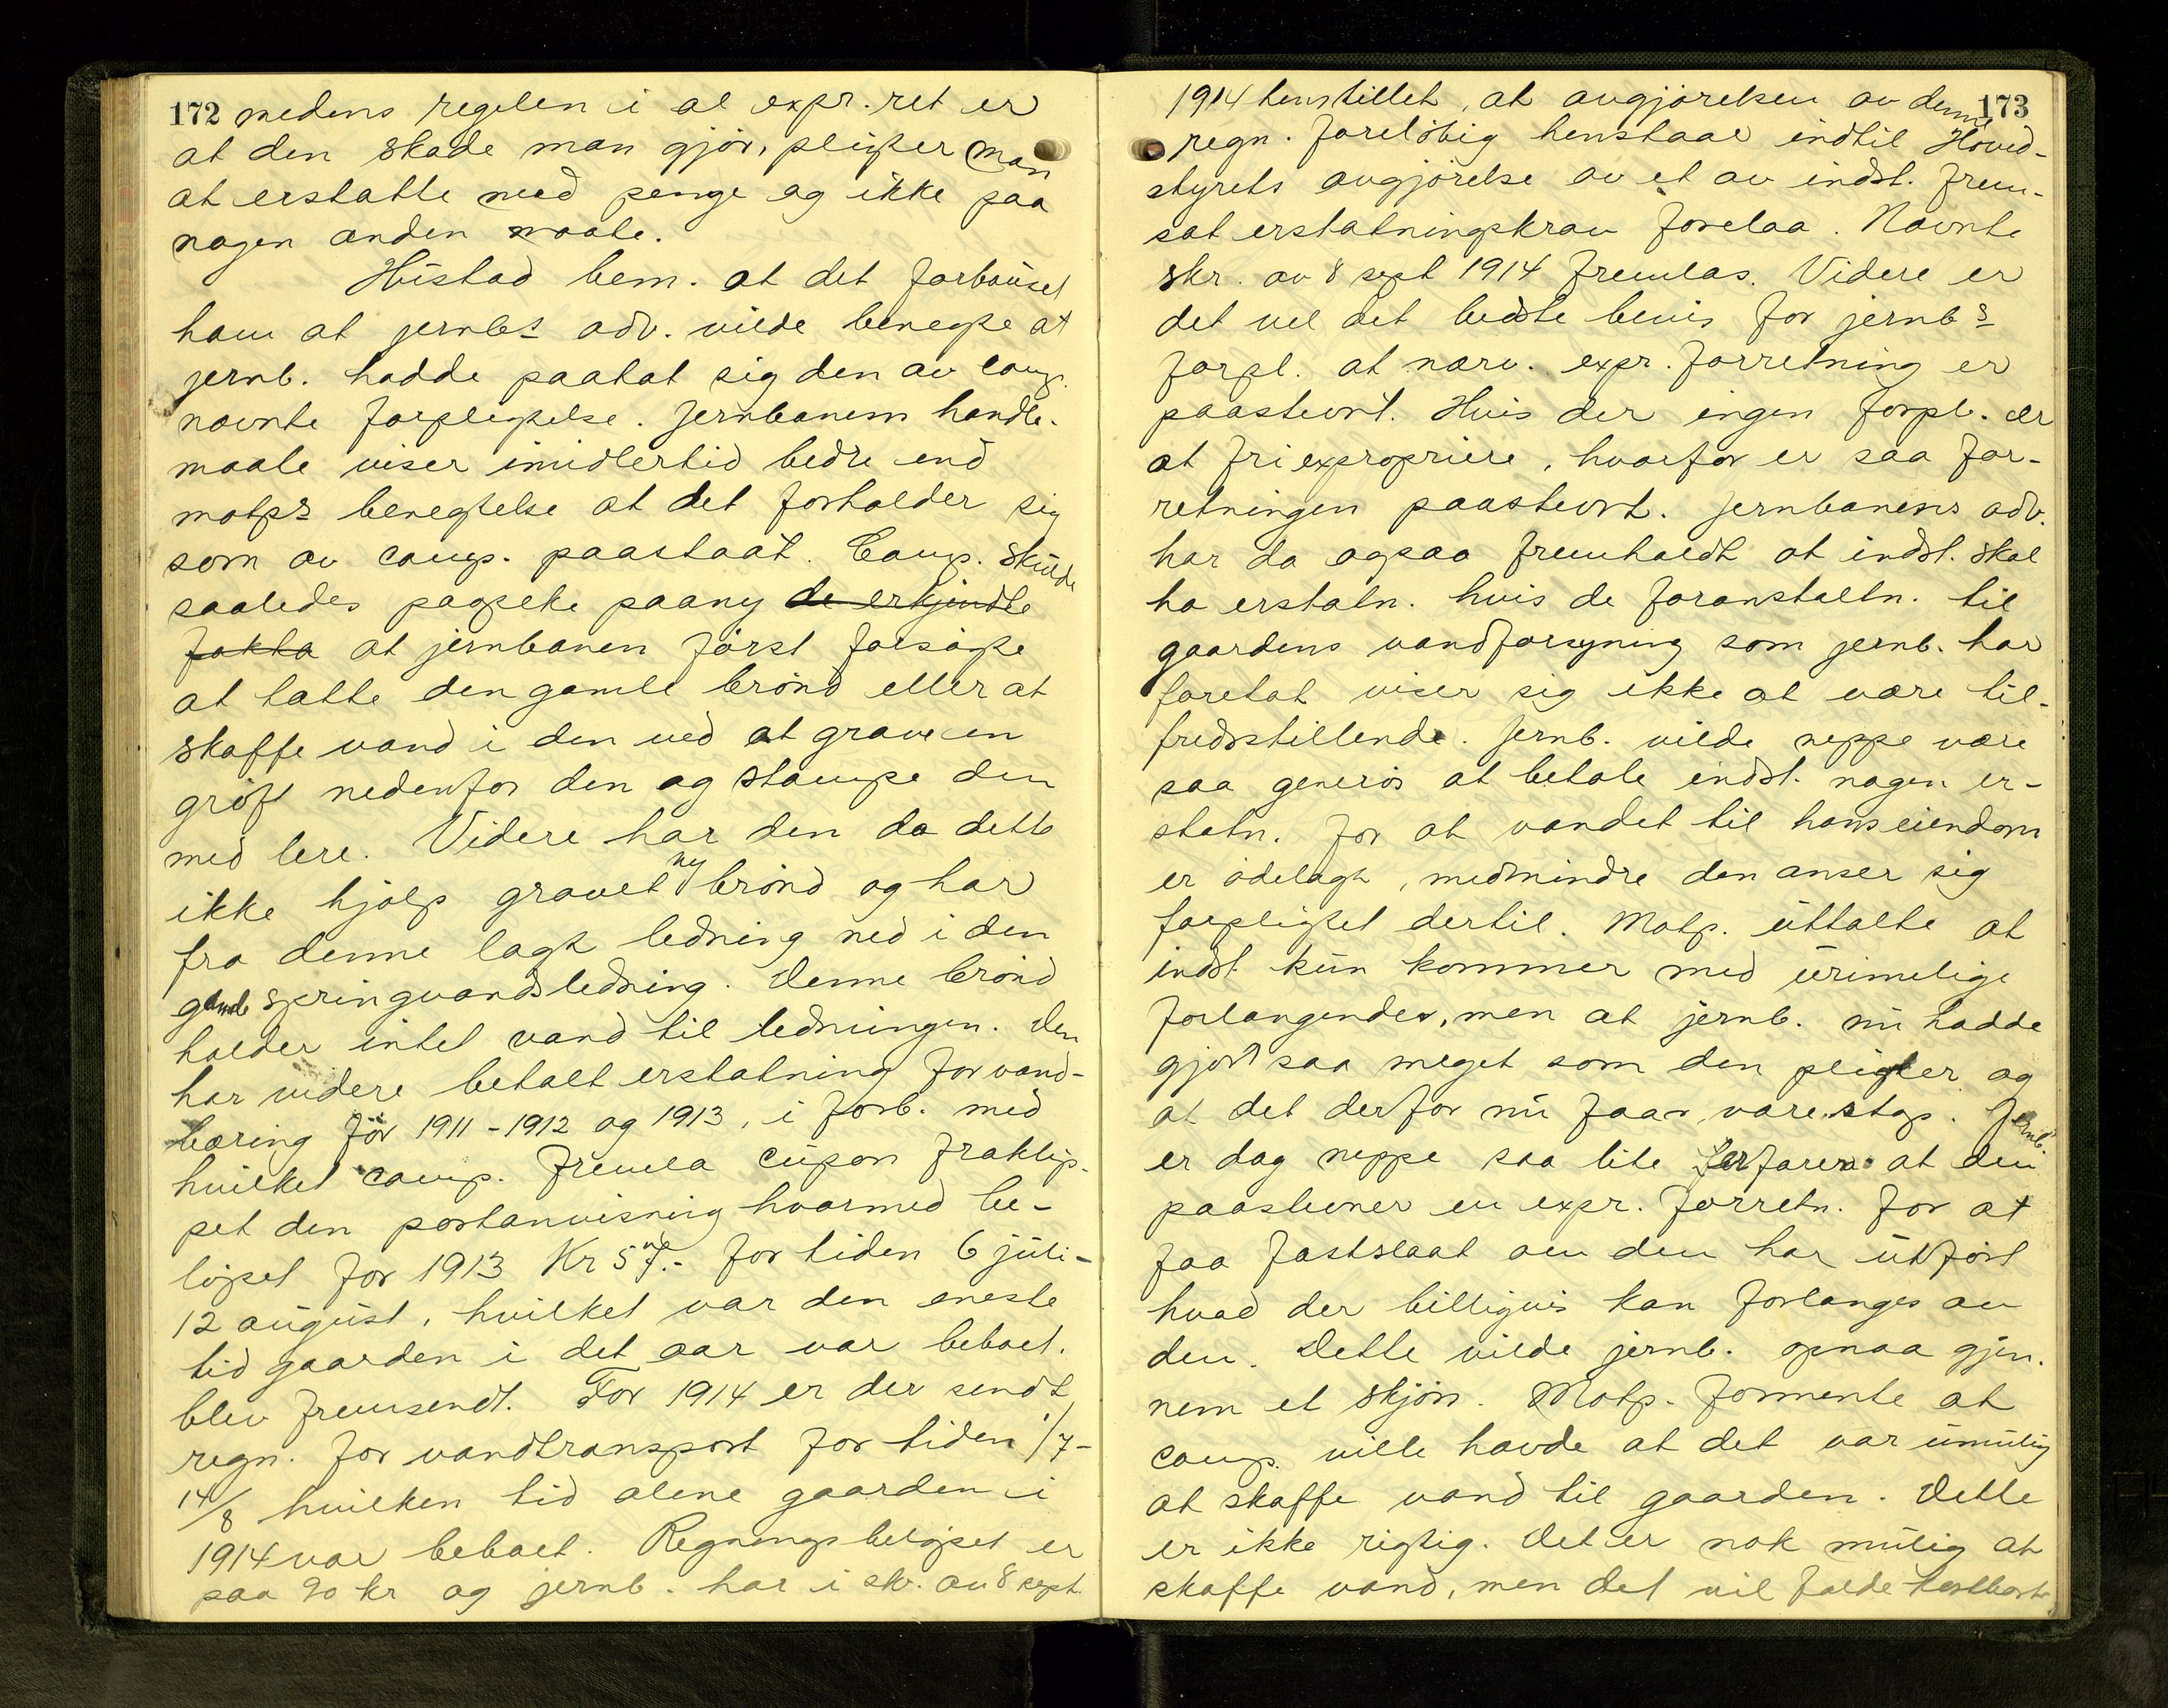 172 medens regelen i al expr. ret er
at den skade man gjør, pligter man
at erstatte med penge og ikke paa
nogen anden maate.
Hustad bem. at det forbauset
ham at jernb.s adv. vilde benegte at
jernb. hadde paatat sig den av comp.
nævnte forpligtelse. Jernbanens handle-
maate viser imidlertid bedre end
motp.s benegtelse at det forholder sig
som av comp. paastaat. Comp. skulde
saaledes paapeke paany de erkjendte
fakta at jernbanen først forsøkte
at tætte den gamle brønd eller at
skaffe vand i den ved at grave en
grøft nedenfor den og stampe den
med lere. Videre har den da dette
ikke hjalp gravet ny brønd og har
fra denne lagt ledning ned i den
gamle springvandsledning. Denne brønd
holder intet vand til ledningen. Den
har videre betalt erstatning for vand-
bæring for 1911-1912 og 1913, i forb. med
hvilket comp. fremla cupon fraklip-
pet den postanvisning hvormed be-
løpet for 1913 Kr 57.- for tiden 6 juli-
12 august, hvilket var den eneste
tid gaarden i det aar var beboet.
blev fremsendt. For 1914 er der sendt
regn. for vandtransport for tiden 1/7-
14/8 hvilken tid alene gaarden i
1914 var beboet. Regningsbeløpet er
paa 90 kr og jernb. har i skr. av 8 sept.
173
1914 henstillet, at avgjørelsen av denne
regn. foreløbig henstaar indtil Hoved-
styrets avgjørelse av et av indst. frem-
sat erstatningskrav forelaa. Nævnte
skr. av 8 sept 1914 fremlas. Videre er
det vel det bedste bevis for jernb.s
forpl. at nærv. expr. forretning er
paastevnt. Hvis der ingen forpl. er
at fri expropriere, hvorfor er saa for-
retningen paastevnt. Jernbanens adv.
har da ogsaa fremholdt at indst. skal
ha erstatn. hvis de foranstaltn. til
gaardens vandforsyning som jernb. har
foretat viser sig ikke at være til-
fredsstillende. Jernb. vilde neppe være
saa generøs at betale indst. nogen er-
statn. for at vandet til hans eiendom
er ødelagt, medmindre den anser sig
forpligtet dertil. Motp. uttalte at
indst. kun kommer med urimelige
forlangender, men at jernb. nu hadde
gjort saa meget som den pligter og
at det derfor nu faar være stop. Jernb.
er dog neppe saa lite erfaren at den
paastevner en expr. forretn. for at
faa fastslaat om den har utført
hvad der billigvis kan forlanges av
den. Dette vilde jernb. opnaa gjen-
nem et skjøn. Motp. formente at
comp. ville hævde at det var umulig
at skaffe vand til gaarden. Dette
er ikke rigtig. Det er nok mulig at
skaffe vand, men det vil falde kostbart